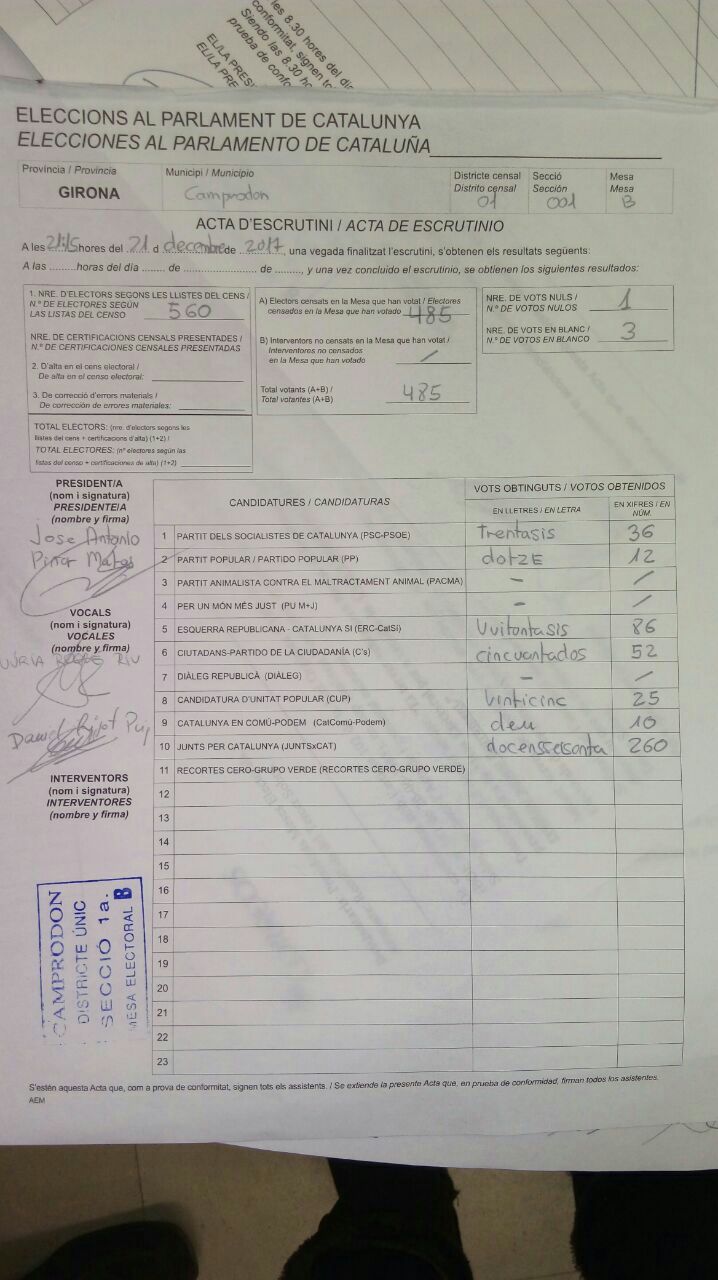 es 8.30 hores del di
Siendo las 8.30 ho
conformitat, signen to
prueba de confo
EL/LA PRES
EL/LA PRE
ELECCIONS AL PARLAMENT DE CATALUNYA
ELECCIONES AL PARLAMENTO DE CATALUÑA
Província / Provincia
GIRONA
Municipi / Municipio
Camprodon
Districte censal
Distrito censal
01
Secció
Sección
001
Mesa
Mesa
B
ACTA D'ESCRUTINI / ACTA DE ESCRUTINIO
A les 21:15 hores del 21 d decembre de 2017, una vegada finalitzat l'escrutini, s'obtenen els resultats següents:
A las ......... horas del día ....... de ...................... de ........, y una vez concluido el escrutinio, se obtienen los siguientes resultados:
1. NRE. D'ELECTORS SEGONS LES LLISTES DEL CENS /
N.º DE ELECTORES SEGÚN
LAS LISTAS DEL CENSO 560
NRE. DE CERTIFICACIONS CENSALS PRESENTADES /
N.º DE CERTIFICACIONES CENSALES PRESENTADAS
2. D'alta en el cens electoral /
De alta en el censo electoral:
3. De correcció d'errors materials /
De corrección de errores materiales:
TOTAL ELECTORS: (nre. d'electors segons les
llistes del cens + certificacions d'alta) (1+2) /
TOTAL ELECTORES: (nº electores según las
listas del censo + certificaciones de alta) (1+2)
A) Electors censats en la Mesa que han votat / Electores
censados en la Mesa que han votado 485
B) Interventors no censats en la Mesa que han votat /
Interventores no censados
en la Mesa que han votado /
Total votants (A+B) /
Total votantes (A+B) 485
NRE. DE VOTS NULS /
N.º DE VOTOS NULOS 1
NRE. DE VOTS EN BLANC /
N.º DE VOTOS EN BLANCO 3
PRESIDENT/A
(nom i signatura)
PRESIDENTE/A
(nombre y firma)
Jose Antonio
VOCALS
(nom i signatura)
VOCALES
(nombre y firma)
David
INTERVENTORS
(nom i signatura)
INTERVENTORES
(nombre y firma)
CANDIDATURES / CANDIDATURAS
VOTS OBTINGUTS / VOTOS OBTENIDOS
EN LLETRES / EN LETRA
EN XIFRES / EN
NÚM.
1 PARTIT DELS SOCIALISTES DE CATALUNYA (PSC-PSOE) Trentasis 36
2 PARTIT POPULAR / PARTIDO POPULAR (PP) dotzE 12
3 PARTIT ANIMALISTA CONTRA EL MALTRACTAMENT ANIMAL (PACMA) - /
4 PER UN MÓN MÉS JUST (PU M+J) - /
5 ESQUERRA REPUBLICANA - CATALUNYA SI (ERC-CatSí) Vvitontasis 86
6 CIUTADANS-PARTIDO DE LA CIUDADANÍA (C's) cincuantados 52
7 DIÀLEG REPUBLICÀ (DIÀLEG) - /
8 CANDIDATURA D'UNITAT POPULAR (CUP) vinticinc 25
9 CATALUNYA EN COMÚ-PODEM (CatComú-Podem) deu 10
10 JUNTS PER CATALUNYA (JUNTSxCAT) docensseisonta 260
11 RECORTES CERO-GRUPO VERDE (RECORTES CERO-GRUPO VERDE)
12
13
14
15
16
17
18
19
20
21
22
23
CAMPRODON
DISTRICTE ÚNIC
SECCIÓ 1a.
MESA ELECTORAL B
S'estén aquesta Acta que, com a prova de conformitat, signen tots els assistents. / Se extiende la presente Acta que, en prueba de conformidad, firman todos los asistentes.
AEM